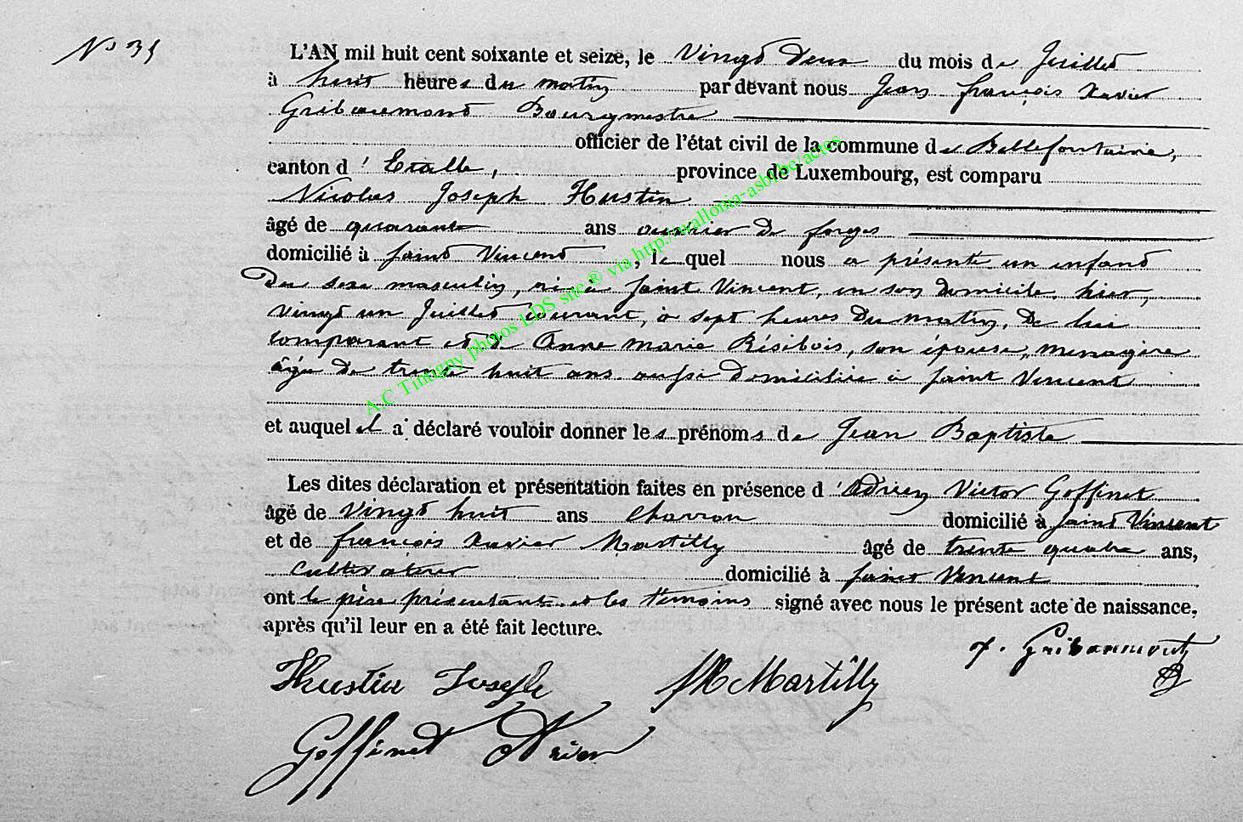 N° 35
L'AN mil huit cent soixante et seize, le Vingt Deux du mois de Juillet
à huit heures du matin par devant nous Jean françois Xavier
Gribaumont Bourgmestre
officier de l'état civil de la commune de Bellefontaine,
canton d'Etalle, province de Luxembourg, est comparu
Nicolas Joseph Hustin
âgé de quarante ans ouvrier de forges
domicilié à Saint Vincent, le quel nous a présenté un enfant
du sexe masculin, né à Saint Vincent, en son domicile, hier,
vingt un Juillet courant, à sept heures du matin, de lui
comparant et de Anne Marie Résibois, son épouse, ménagère
âgée de trente huit ans aussi domiciliée à Saint Vincent
et auquel il a déclaré vouloir donner les prénoms de Jean Baptiste
Les dites déclaration et présentation faites en présence d'Adrien Victor Goffinet
âgé de vingt huit ans charron domicilié à Saint Vincent
et de françois Xavier Martilly âgé de trente quatre ans,
cultivateur domicilié à Saint Vincent
ont le père présentant et les témoins signé avec nous le présent acte de naissance,
après qu'il leur en a été fait lecture.
Gribaumont
Hustin Joseph Martilly
Goffinet Adrien
A.C Tintigny photos LDS site® via http://wallonia-asbl.be/actes